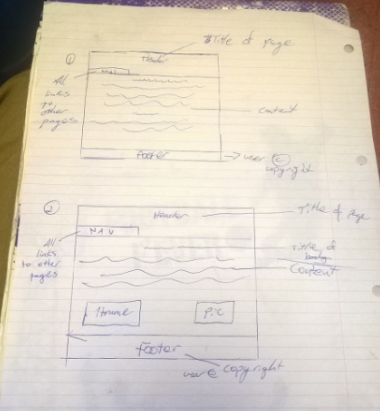 Title of page
①
Header
NAV
All
links
to
other
pages
content
Footer
user ©
copyright
②
Header
Title of Page
NAV
All
links
to other
pages
Title of
Content
Home
Pic
Footer
user © copyright